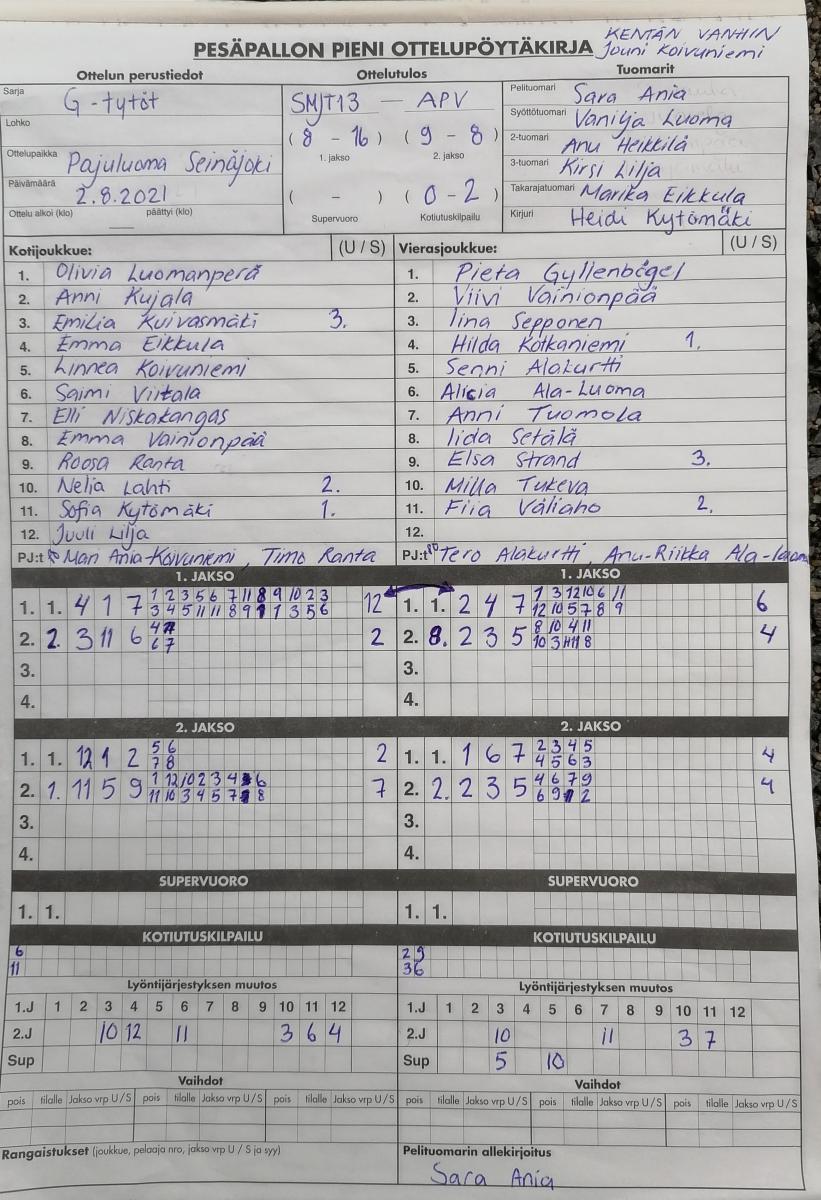 KENTÄN VANHIN
PESÄPALLON PIENI OTTELUPÖYTÄKIRJA Jouni Koivuniemi
Ottelun perustiedot Ottelutulos Tuomarit
Sarja G-tytöt
Lohko
Ottelupaikka Pajuluoma Seinäjoki
Päivämäärä 2.8.2021
Ottelu alkoi (klo) päättyi (klo)
SMJT13 — APV
(8 - 16) (9 - 8)
1. jakso 2. jakso
( - ) (0 - 2)
Supervuoro Kotiutuskilpailu
Pelituomari Sara Ania
Syöttötuomari Vanilja Luoma
2-tuomari Anu Heikkilä
3-tuomari Kirsi Lilja
Takarajatuomari Marika Eikkula
Kirjuri Heidi Kytömäki
Kotijoukkue: (U / S)
1. Olivia Luomanperä
2. Anni Kujala
3. Emilia Kuivasmäki 3.
4. Emma Eikkula
5. Linnea Koivuniemi
6. Saimi Virtala
7. Elli Niskakangas
8. Emma Vainionpää
9. Roosa Ranta
10. Nelja Lahti 2.
11. Sofia Kytömäki 1.
12. Juuli Lilja
PJ:t Mari Ania-Koivuniemi, Timo Ranta
Vierasjoukkue: (U / S)
1. Pieta Gyllenbögel
2. Viivi Vainionpää
3. Iina Sepponen
4. Hilda Kotkaniemi 1.
5. Senni Alakurtti
6. Alicia Ala-Luoma
7. Anni Tuomola
8. Iida Setälä
9. Elsa Strand 3.
10. Milla Tukeva
11. Fiia Väliaho 2.
12.
PJ:t Tero Alakurtti, Anu-Riikka Ala-Luoma
1. JAKSO
1. 1. 4 1 7 1 2 3 5 6 7 11 8 9 10 2 3 12
3 4 5 11 11 8 9 1 1 3 5 6
2. 2. 3 11 6 4 2
6 7
3.
4.
1. JAKSO
1. 1. 2 4 7 1 3 12 10 6 11 6
12 10 5 7 8 9
2. 8. 2 3 5 8 10 4 11 4
10 3 11 8
3.
4.
2. JAKSO
1. 1. 12 1 2 5 6 2
7 8
2. 1. 11 5 9 1 12 10 2 3 4 6 7
11 10 3 4 5 7 8
3.
4.
2. JAKSO
1. 1. 1 6 7 2 3 4 5 4
4 5 6 3
2. 2. 2 3 5 4 6 7 9 4
6 9 2
3.
4.
SUPERVUORO SUPERVUORO
1. 1. 1. 1.
KOTIUTUSKILPAILU
6
11
KOTIUTUSKILPAILU
2 9
3 6
Lyöntijärjestyksen muutos
1.J 1 2 3 4 5 6 7 8 9 10 11 12
2.J 10 12 11 3 6 4
Sup
Lyöntijärjestyksen muutos
1.J 1 2 3 4 5 6 7 8 9 10 11 12
2.J 10 11 3 7
Sup 5 10
Vaihdot Vaihdot
pois tilalle Jakso vrp U/S pois tilalle Jakso vrp U/S pois tilalle Jakso vrp U/S
pois tilalle Jakso vrp U/S pois tilalle Jakso vrp U/S pois tilalle Jakso vrp U/S
Rangaistukset (joukkue, pelaaja nro, jakso vrp U / S ja syy)
Pelituomarin allekirjoitus
Sara Ania